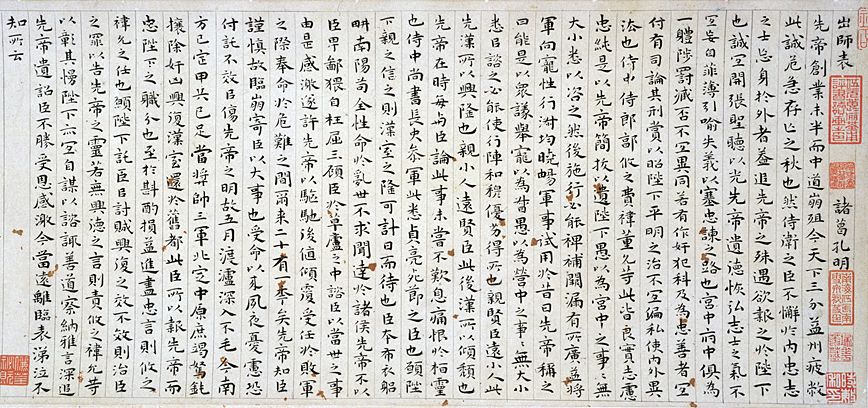 出師表
諸葛孔明
先帝創業未半而中道崩殂今天下三分益州疲敝
此誠危急存亡之秋也然侍衛之臣不懈於內忠志
之士忘身於外者蓋追先帝之殊遇欲報之於陛下
也誠宜開張聖聽以光先帝遺德恢弘志士之氣不
宜妄自菲薄引喻失義以塞忠諫之路也宮中府中俱為
一體陟罰臧否不宜異同若有作奸犯科及為忠善者宜
付有司論其刑賞以昭陛下平明之治不宜偏私使內外異
法也侍中侍郎郭攸之費禕董允等此皆良實志慮
忠純是以先帝簡拔以遺陛下愚以為宮中之事事無
大小悉以咨之然後施行必能裨補闕漏有所廣益將
軍向寵性行淑均曉暢軍事試用於昔日先帝稱之
曰能是以眾議舉寵以為督愚以為營中之事事無大小
悉以諮之必能使行陣和穆優劣得所也親賢臣遠小人此
先漢所以興隆也親小人遠賢臣此後漢所以傾頹也
先帝在時每與臣論此事未嘗不歎息痛恨於桓靈
也侍中尚書長史參軍此悉貞亮死節之臣也願陛
下親之信之則漢室之隆可計日而待也臣本布衣躬
耕南陽苟全性命於亂世不求聞達於諸侯先帝不以
臣卑鄙猥自枉屈三顧臣於草廬之中諮臣以當世之事
由是感激遂許先帝以驅馳後值傾覆受任於敗軍
之際奉命於危難之間爾來二十有一年矣先帝知臣
謹慎故臨崩寄臣以大事也受命以來夙夜憂慮恐
付託不效以傷先帝之明故五月渡瀘深入不毛今南
方已定甲兵已足當獎帥三軍北定中原庶竭駑鈍
攘除奸凶興復漢室還於舊都此臣所以報先帝而
忠陛下之職分也至於斟酌損益進盡忠言則攸之
禕允之任也願陛下託臣以討賊興復之效不效則治臣
之罪以告先帝之靈若無興德之言則責攸之禕允等
以彰其慢陛下亦宜自謀以諮諏善道察納雅言深追
先帝遺詔臣不勝受恩感激今當遠離臨表涕泣不
知所云